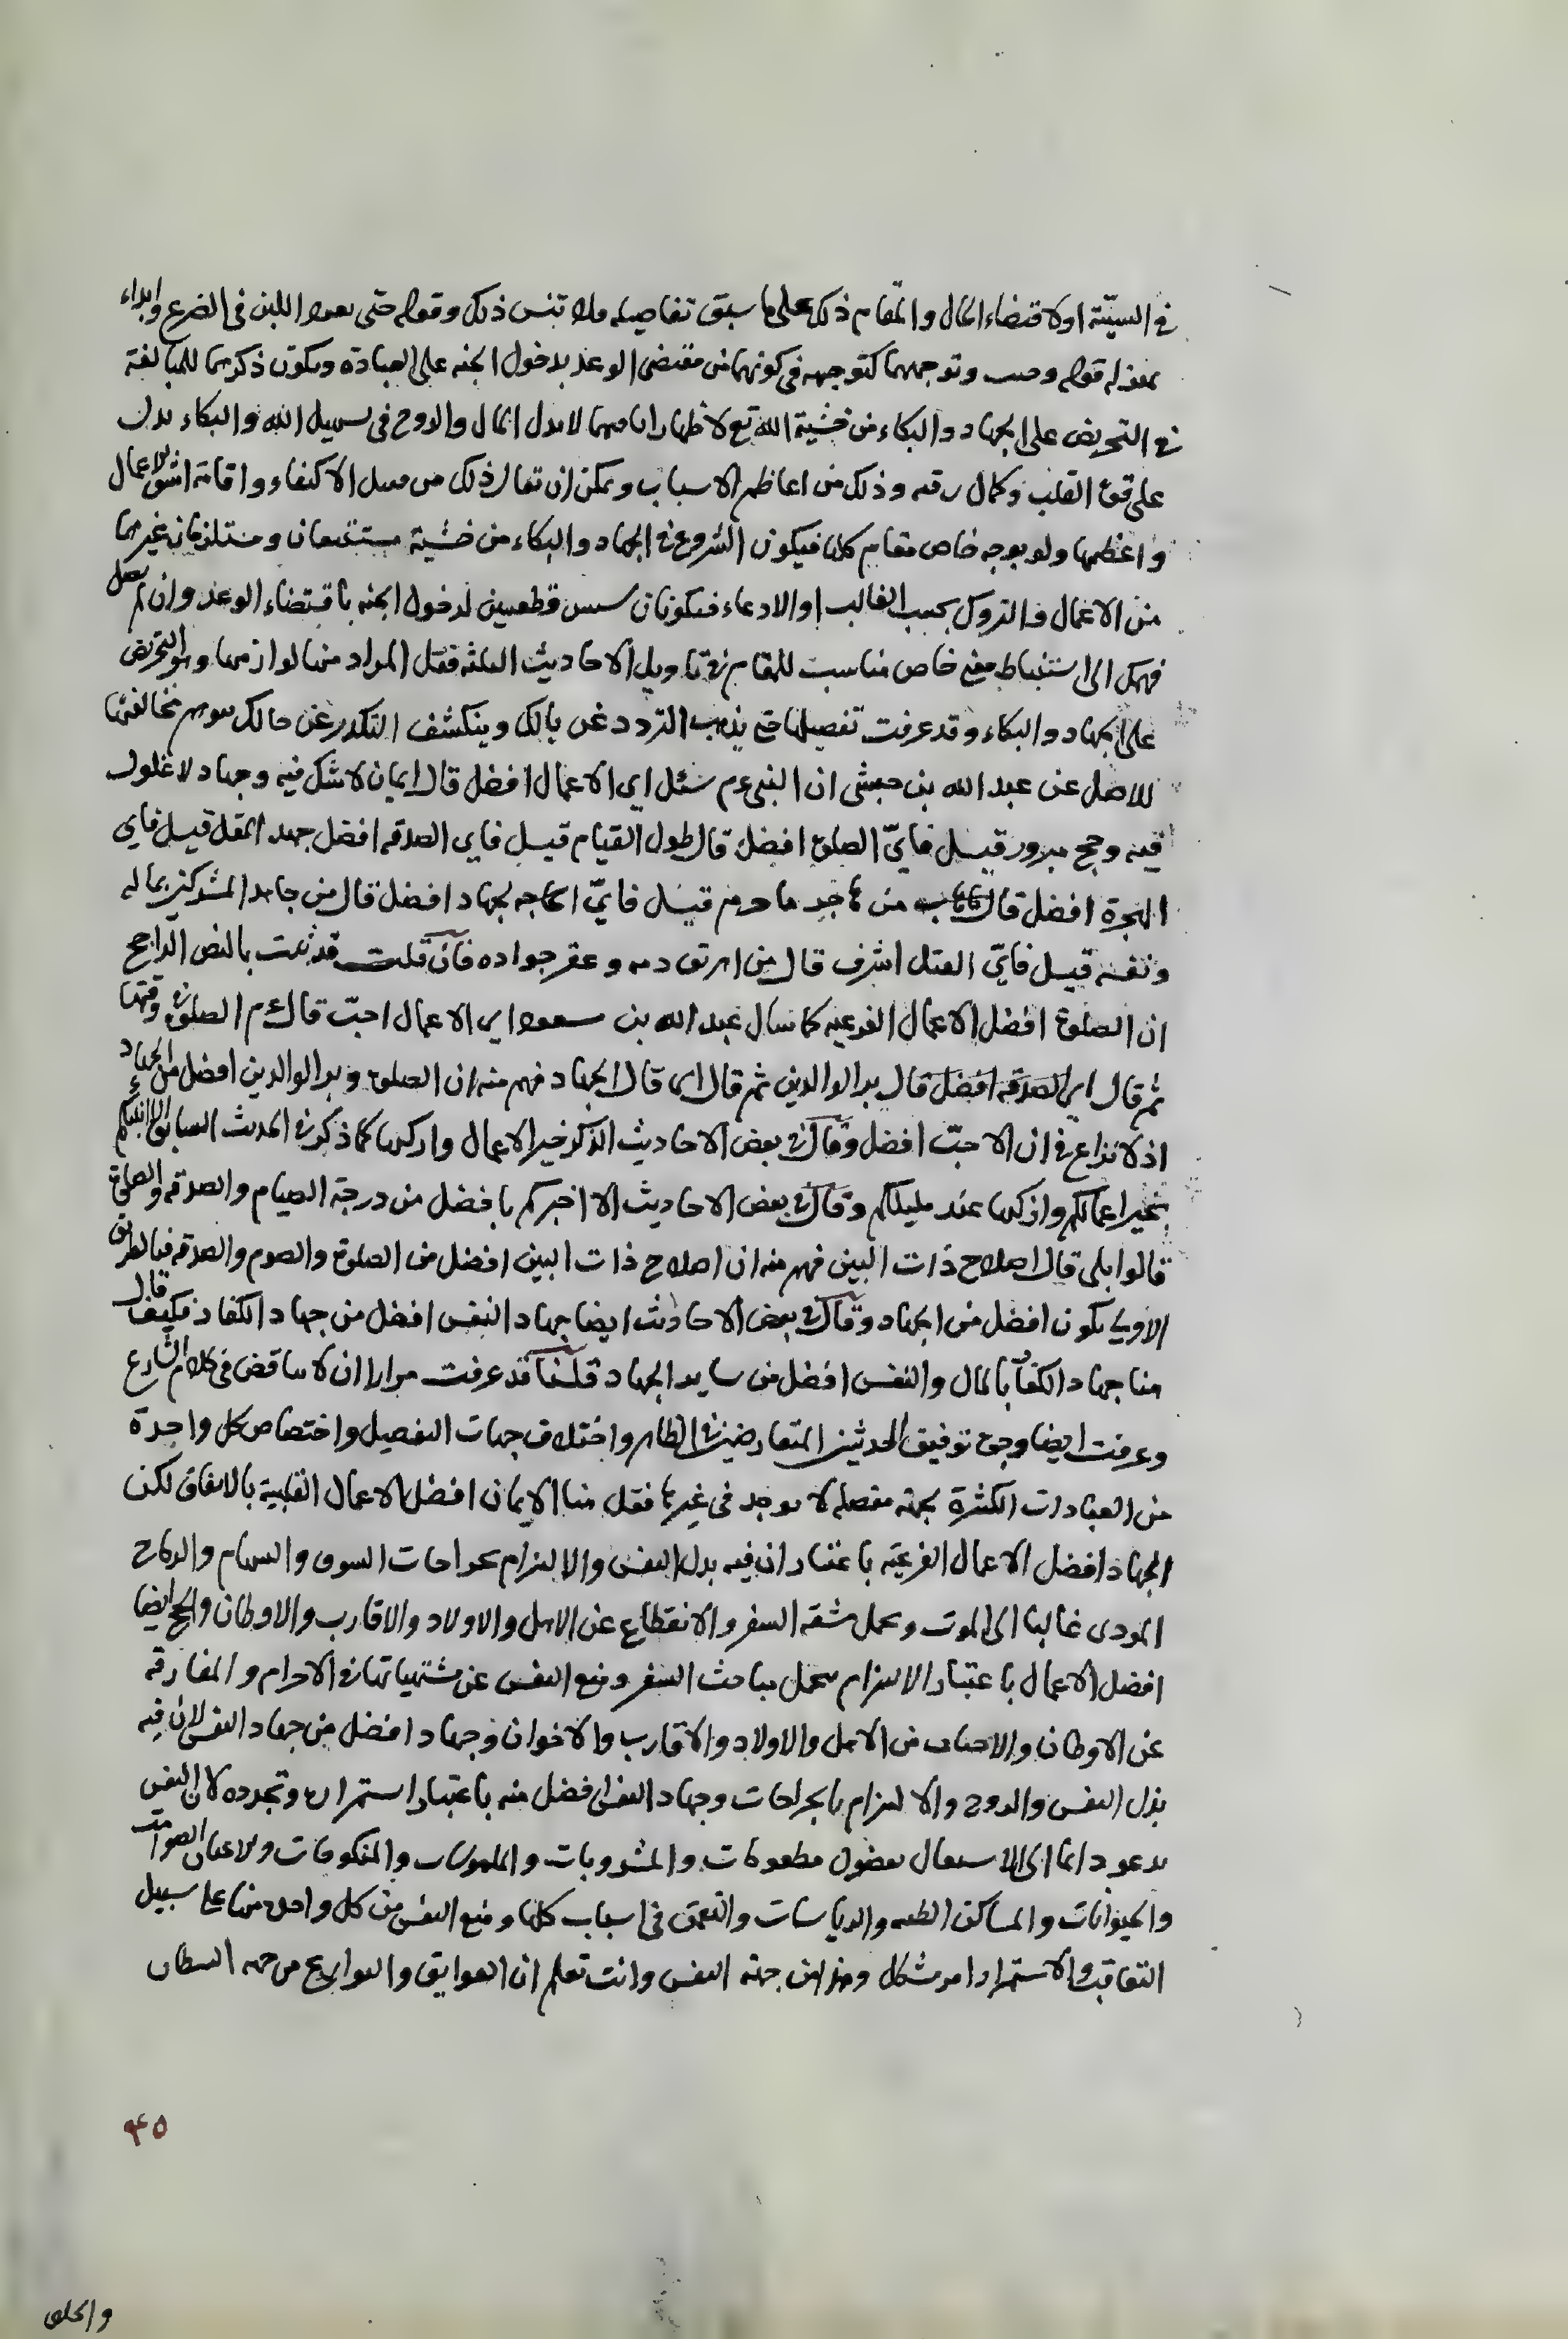 في السيئة او لاقتضاء الحال والمقام ذلك على ما سبق تفاصيله ولا تنس ذلك وقوله حتى يعود اللبن في الضرع وابداء
بمنزلة قوله وجبت وتوجيهها كتوجيهه في كونهما من مقتضى الوعد بدخول الجنه على العبادة ويكون ذكرهما للمبالغة
في التحريض على الجهاد والبكاء من خشية الله تع لاظهار لا بدل المال والروح في سبيل الله والبكاء يدل
على قوة القلب وكمال رقته وذلك من اعاظم الاسباب ويمكن ان يقال ذلك من قبيل الاكتفاء واقامة اشق الاعمال
واعظمها ولو بوجه خاص مقام كلها فيكون الشروع في الجهاد والبكاء من خشية مستتبعان ومستلزمان غيرهما
من الاعمال والتروك بحسب الغالب او الادعاء فيكونان سببين قطعيين لدخول الجنه باقتضاء الوعد وان لم يصل
فهمك الى استنباط معنى خاص مناسب للمقام في تاويل الاحاديث الثلثة فقل المراد منها لوازمها وهو التحريض
على الجهاد والبكاء وقد عرفت تفصيلها حتى يذهب التردد عن بالك وينكشف التكدر عن حالك بتوهم مخالفتها
للاصل عن عبد الله بن حبشي ان النبي ءم سئل اي الاعمال افضل قال ايمان لا شك فيه وجهاد لا غلول
فيه وحج مبرور قيل فايّ الصلوة افضل قال طول القيام قيل فاي الصدقه افضل جهد المقل قيل فاي
الهجرة افضل قال من هاجر ما حرم قيل فايّ الجهاد افضل قال من جاهد المشركين بماله
ونفسه قيل فايّ القتل اشرف قال من اهرق دمه وعقر جواده فان قلت قد ثبت بالنص الراجح
ان الصلوة افضل الاعمال الفرعيه كما سال عبد الله بن مسعود اي الاعمال احبّ قال ءم الصلوة في وقتها
ثم قال اي الصدقه افضل قال بر الوالدين ثم قال اي قال الجهاد فهم منه ان الصلوة وبر الوالدين افضل من الجهاد
اذ لا نزاع في ان الاحبّ افضل وقال في بعض الاحاديث الذكر خير الاعمال وازكيها كما ذكر في الحديث السابق الا انبئكم
بخير اعمالكم وازكيها عند مليككم وقال في بعض الاحاديث الا اخبركم بافضل من درجة الصيام والصدقه والصلوة
قالوا بلى قال اصلاح ذات البين فهم منه ان اصلاح ذات البين افضل من الصلوة والصوم والصدقه فبالطريق
الاولى يكون افضل من الجهاد وقال في بعض الاحاديث ايضا جهاد النفس افضل من جهاد الكفار فكيف قال
هنا جهاد الكفار بالمال والنفس افضل من ساير الجهاد قلنا قد عرفت مرارا ان لا تناقض في كلام الشارع
وعرفت ايضا وجوه توفيق الحديثين المتعارضين في الظاهر واختلاف جهات التفضيل واختصاص كل واحدة
من العبادات الكثيرة بجهة مفضله لا يوجد في غيرها فقل هنا الايمان افضل الاعمال القلبية بالاتفاق لكن
الجهاد افضل الاعمال الفرعيّه باعتبار ان فيه بذل النفس والالتزام بجراحات السيوف والسهام والرماح
المودى غالبا الى الموت وتحمل مشقة السفر والانقطاع عن الاهل والاولاد والاقارب والاوطان والحج ايضا
افضل الاعمال باعتبار الالتزام بتحمل مباحث السفر ومنع النفس عن مشتهياتها في الاحرام والمفارقة
عن الاوطان والاحباب من الاهل والاولاد والاقارب والاخوان وجهاد افضل من جهاد النفس لان فيه
بذل النفس والروح والالتزام بالجراحات وجهاد النفس افضل منه باعتبار استمراره وتجدده لان النفس
يدعو دائما الى الاستعمال بفضول مطعومات والمشروبات والملبوسات والمنكوحات والصوامت
والحيوانات والمساكن والرياسات والتعمق في اسباب كلها ومنع النفس من كل واحدة منها على سبيل
التعاقب والاستمرار امر مشكل وهذا من جهة النفس وانت تعلم ان العوايق من جهة الشيطان
٩٤٥
والخلق